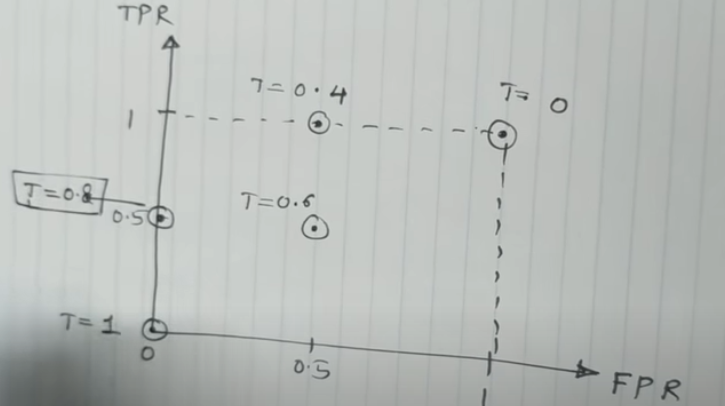 TPR
T= 0.4
T= 0
1
T=0.8
0.5
T=0.6
T= 1
0
0.5
1
FPR